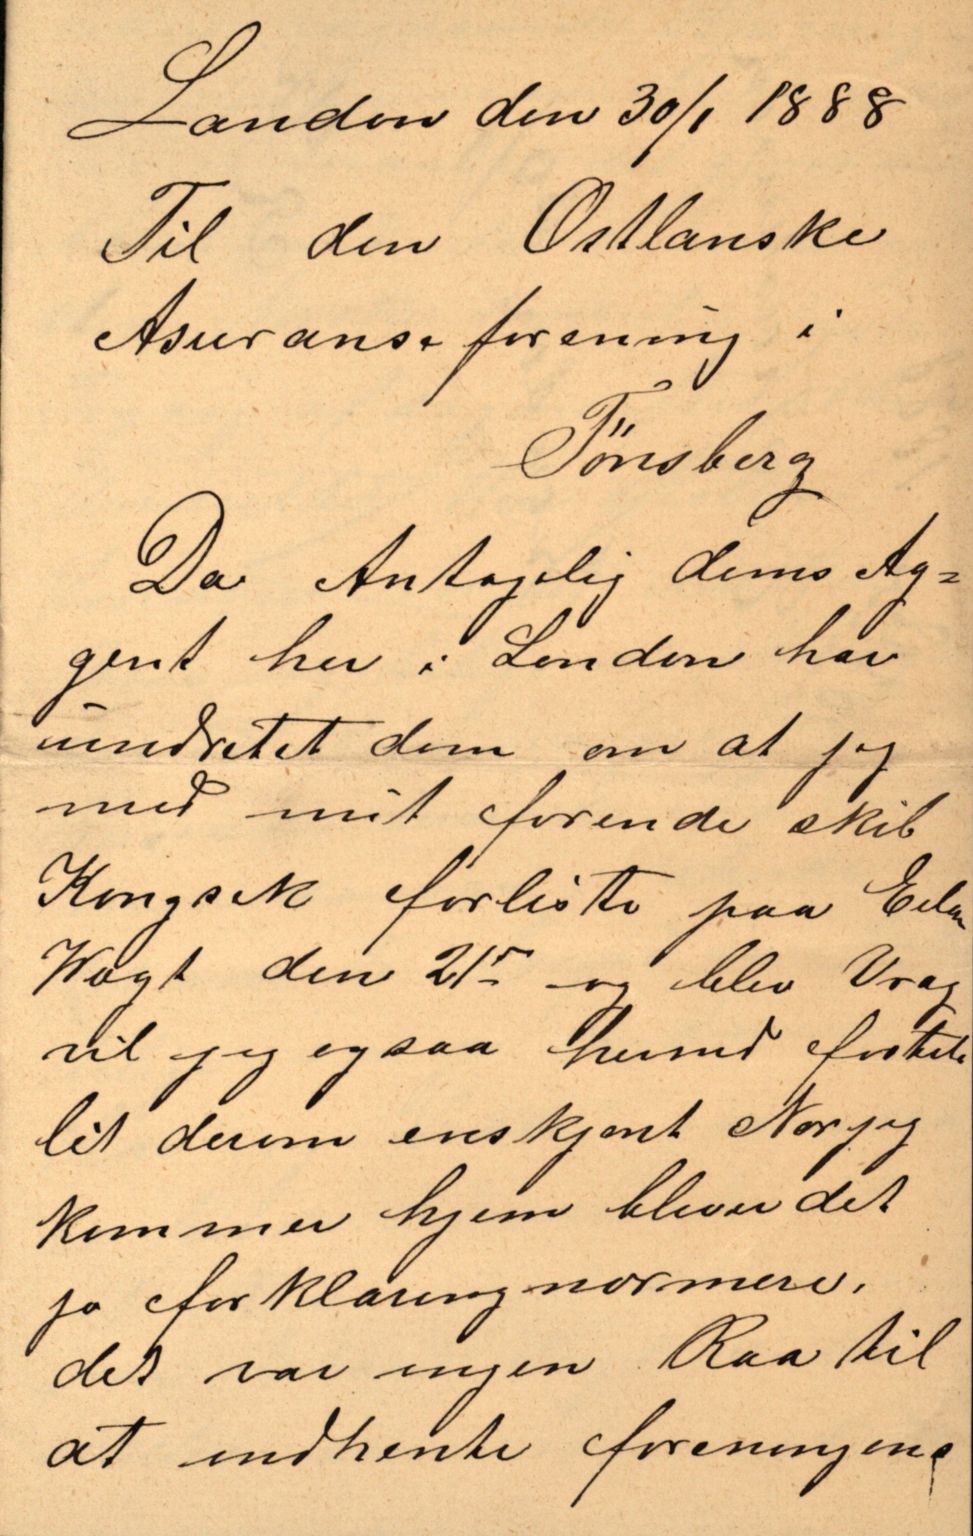 London den 30/1 1888
Til den Ostlanske
Asuranse forening i
Tönsberg
Da Antagelig deres Ag=
gent her i London har
undretet dem om at jeg
med mit førende skib
Kongsek forliste paa
Wagt den 21de og blev Vrag
vil jeg ogsaa herved fortele
lit derom enskjønt Nor jeg
kommer hjem bliver det
jo forklaring nærmere.
det var ingen Raa til
at indhente foreningens